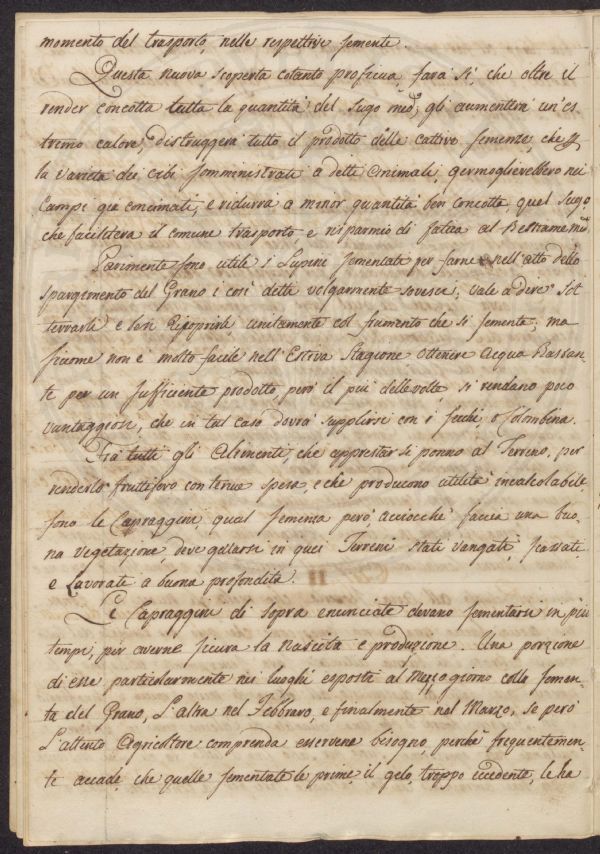 momento del trasporto, nelle respettive semente.
Questa nuova scoperta cotanto proficua, farà sì, che oltre il
render concotta tutta la quantità del sugo med.º gli aumenterà un'es
tremo calore, distruggerà tutto il prodotto delle cattive semenze, che p
la varietà dei cibi somministrati a detti Animali, germoglierebbero nei
Campi già concimati, e ridurrà a minor quantità ben concotta, quel sugo
che faciliterà il comune trasporto e risparmio di fatica al Bestiame med.º
Parimente sono utili i Lupini sementati per farne nell'atto dello
spargimento del Grano i così detti volgarmente sovesci; vale a dire Sot
terrarli e ben Ricoprirli unitamente col frumento che si sementa; ma
sicome non è molto facile nell'Estiva Stagione Ottenere Acqua Bastan-
te per un sufficiente prodotto, però il più delle volte si rendano poco
vantaggiosi, che in tal caso dovrà supplirsi con i secchi, o Colombina.
Frà tutti gli Alimenti, che apprestar si ponno al Terreno, per
renderlo fruttifero con tenue spesa, e che producono utilità incalcolabile
sono le Capraggini, qual semenza però, acciocchè faccia una buo-
na vegetazione, deve gettarsi in quei Terreni stati vangati, scassati,
e Lavorati a buona profondità.
Le Capraggini di sopra enunciate devano sementarsi in più
tempi, per averne sicura la nascita e produzione. Una porzione
di esse particolarmente nei luoghi esposti al Mezzo giorno colla semen-
ta del Grano, L'altra nel Febbraro, e finalmente nel Marzo, se però
L'attento Agricoltore comprenda esservene bisogno, perchè frequentemen-
te accade, che quelle sementate le prime, il gelo, troppo eccedente, le ha